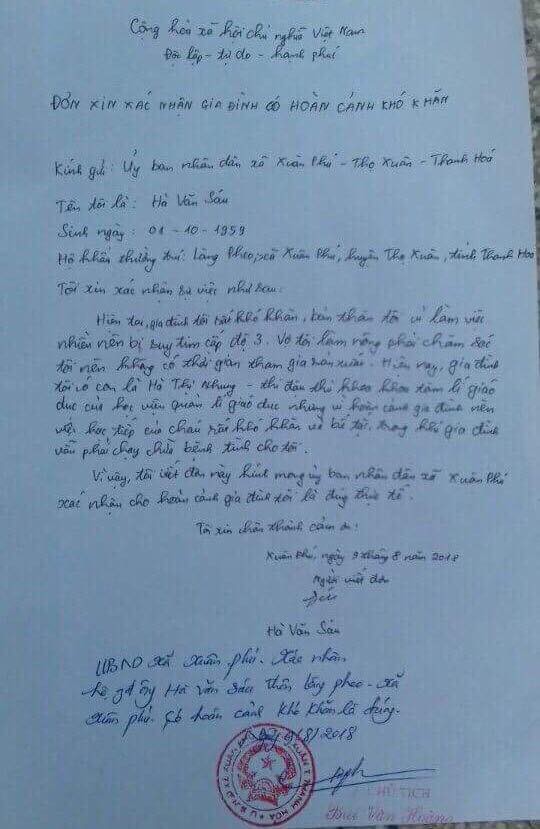 Cộng hòa xã hội chủ nghĩa Việt Nam
Độc lập - tự do - hạnh phúc
ĐƠN XIN XÁC NHẬN GIA ĐÌNH CÓ HOÀN CẢNH KHÓ KHĂN
Kính gửi: Uỷ ban nhân dân xã Xuân Phú - Thọ Xuân - Thanh Hoá
Tên tôi là: Hà Văn Sáu
Sinh ngày: 01-10-1959
Hộ khẩu thường trú: Làng Pheo, xã Xuân Phú, huyện Thọ Xuân, tỉnh Thanh Hoá
Tôi xin xác nhận sự việc như sau:
Hiện tại, gia đình tôi rất khó khăn, bản thân tôi vì làm việc
nhiều nên bị suy tim cấp độ 3. Vợ tôi làm nông phải chăm sóc
tôi nên không có thời gian tham gia sản xuất. Hiện nay, gia đình
tôi có con là Hà Thị Nhung - thi đậu thủ khoa khoa tâm lí giáo
dục của học viện quản lí giáo dục nhưng vì hoàn cảnh gia đình nên
việc học tiếp của cháu rất khó khăn và bế tắc, trong khi gia đình
vẫn phải chạy chữa bệnh tình cho tôi.
Vì vậy, tôi viết đơn này kính mong uỷ ban nhân dân xã Xuân Phú
xác nhận cho hoàn cảnh gia đình tôi là đúng thực tế.
Tôi xin chân thành cảm ơn!
Xuân Phú, ngày 9 tháng 8 năm 2018
Người viết đơn
Sáu
Hà Văn Sáu
UBND xã Xuân phú. Xác nhận
hộ gđ ông Hà Văn Sáu thôn làng pheo - xã
Xuân phú. Có hoàn cảnh khó khăn là đúng.
9/8/2018
CHỦ TỊCH
Bùi Văn Hoàng